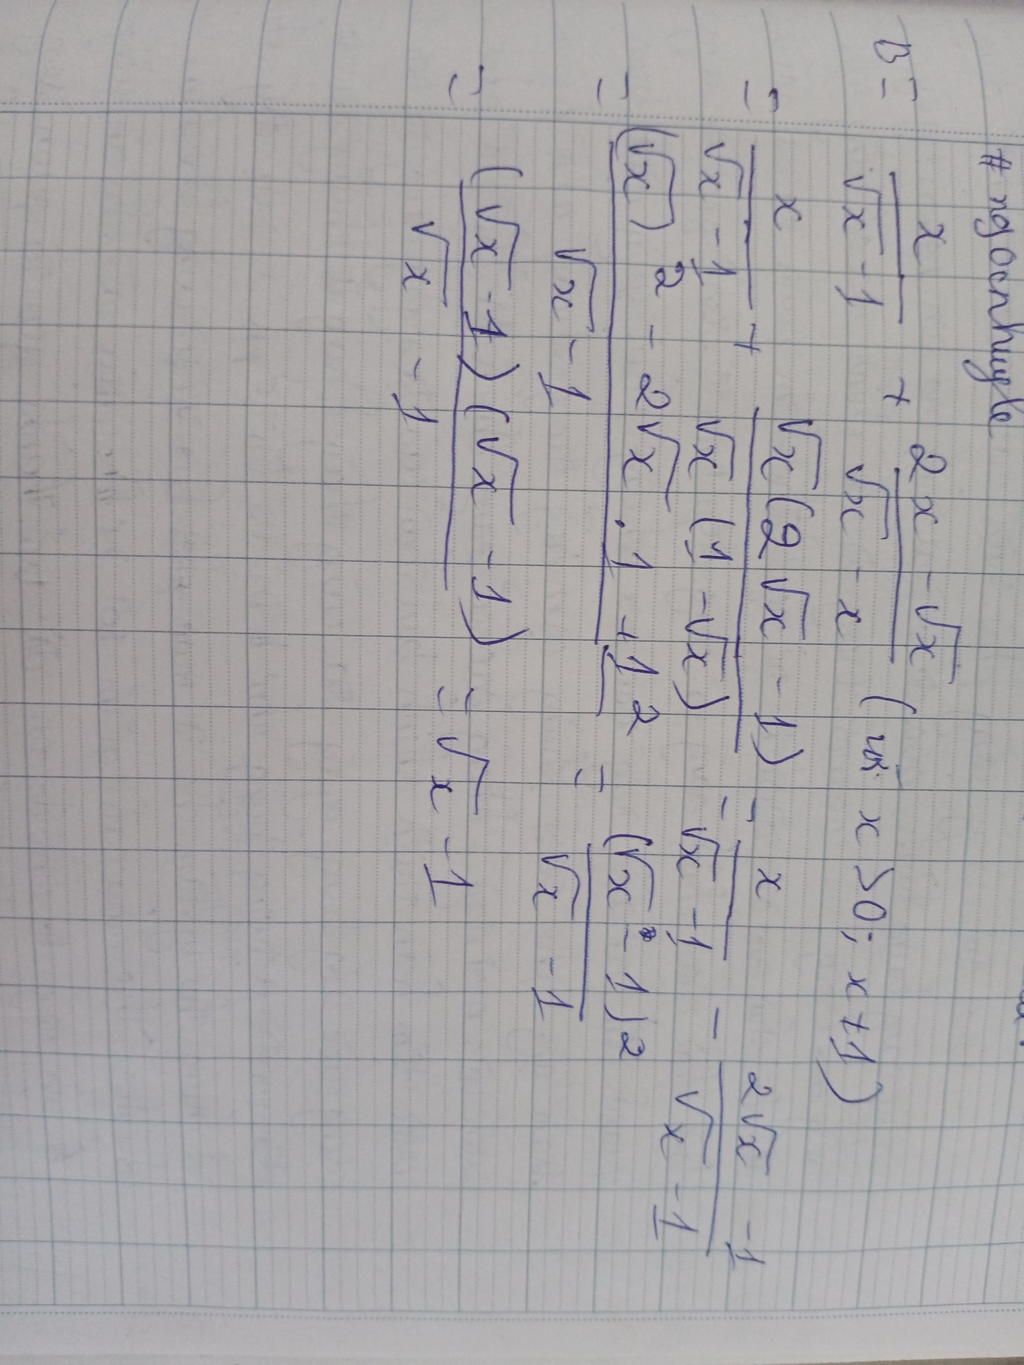 # ngocnhugle
B = x/(√x - 1) + (2x - √x)/(√x - x) (x > 0; x ≠ 1)
= x/(√x - 1) + √x(2√x - 1)/(√x(1 - √x)) = x/(√x - 1) - (2√x - 1)/(√x - 1)
= ((√x)² - 2√x . 1 + 1²)/(√x - 1) = (√x - 1)²/(√x - 1)
= (√x - 1)(√x - 1)/(√x - 1) = √x - 1